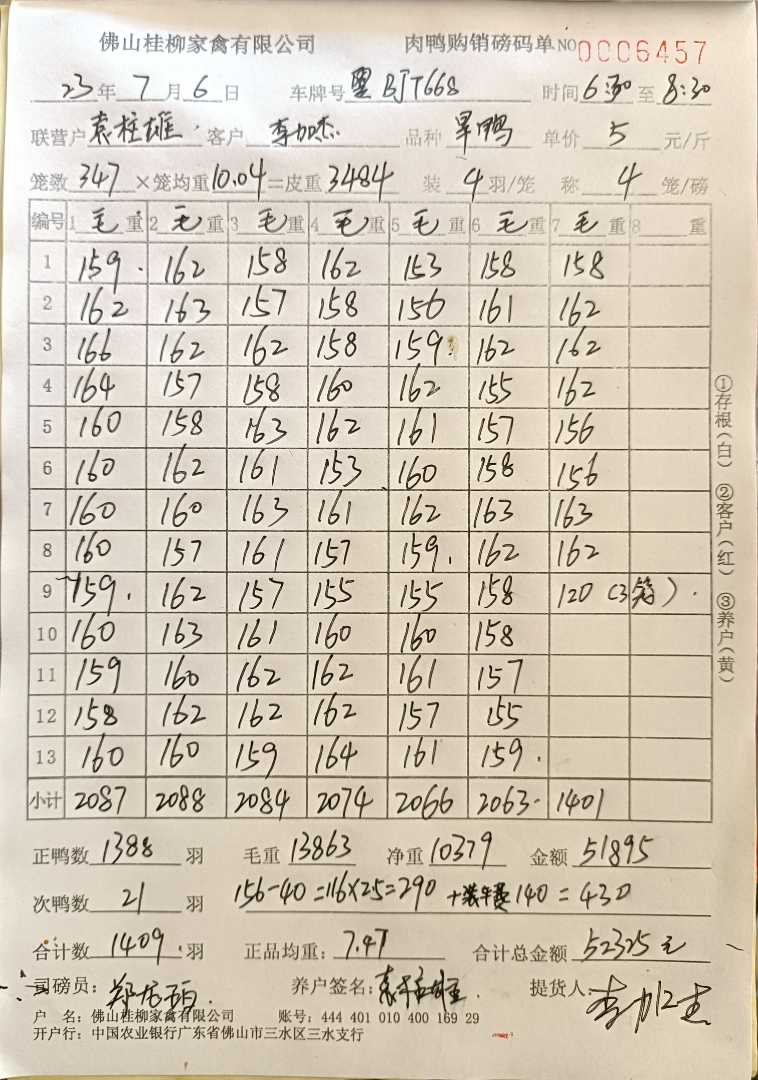 佛山桂柳家禽有限公司 肉鸭购销磅码单 NO 0006457
23年7月6日 车牌号 BJT668 时间6:30至8:30
联营户 袁柱雄 客户 李加杰 品种 旱鸭 单价 5 元/斤
笼数 347 ×笼均重 10.04 =皮重 3484 装 4 羽/笼 称 4 笼/磅
编号 1 毛 重 2 毛 重 3 毛 重 4 毛 重 5 毛 重 6 毛 重 7 毛 重 8 重
1 159. 162 158 162 153 158 158
2 162 163 157 158 156 161 162
3 166 162 162 158 159 162 162
4 164 157 158 160 162 155 162
5 160 158 163 162 161 157 156
6 160 162 161 153 160 158 156
7 160 160 163 161 162 163 163
8 160 157 161 157 159. 162 162
9 159. 162 157 155 155 158 120 (3笼).
10 160 163 161 160 160 158
11 159 160 162 162 161 157
12 158 162 162 162 157 155
13 160 160 159 164 161 159.
小计 2087 2088 2084 2074 2066 2063. 1401
正鸭数 1388 羽 毛重 13863 净重 10379 金额 51895
次鸭数 21 羽 156-40=116×2.5=290 +装车费 140=430
合计数 1409. 羽 正品均重: 7.47 合计总金额 52325 元
司磅员: 养户签名: 袁柱雄. 提货人: 李加杰
户 名: 佛山桂柳家禽有限公司 账号: 444 401 010 400 169 29
开户行: 中国农业银行广东省佛山市三水区三水支行
①存根(白) ②客户(红) ③养户(黄)